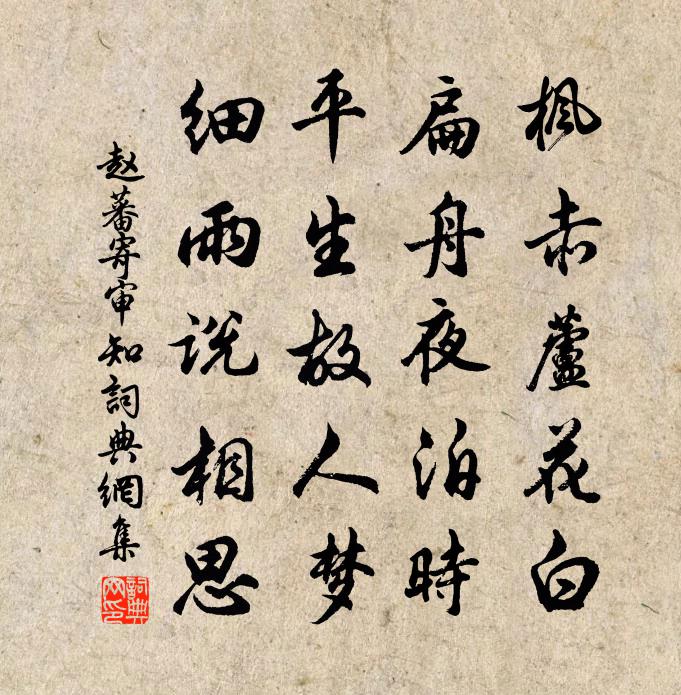 枫赤蘆花白
扁舟夜泊時
平生故人梦
细雨说相思
赵蕃寄审知詞典網集
詞典网印